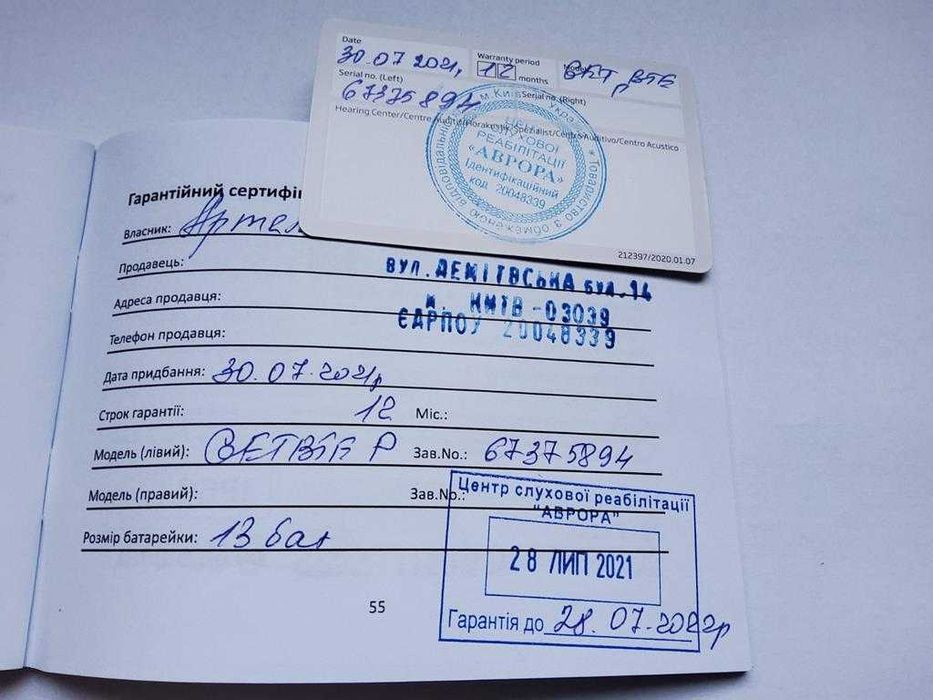 Date
30.07.2021,
Warranty period
12 months
Serial no. (Left)
67375894
Serial no. (Right)
Hearing Center/Centre Auditif/Horakustik Spezialist/Centro Auditivo/Centro Acustico
СЛУХОВОЇ
РЕАБІЛІТАЦІЇ
«АВРОРА»
Ідентифікаційний
код 20048339
212397/2020.01.07
Гарантійний
Власник:
Продавець:
ВУЛ. ДЕМІЇВСЬКА БУД. 14
Адреса продавця:
М. КИЇВ - 03039
ЄДРПОУ 20048339
Телефон продавця:
Дата придбання: 30.07.2021р
Строк гарантії: 12 Міс.:
Модель (лівий): Зав.No.: 67375894
Модель (правий): Зав.No.:
Розмір батарейки: 13 бат
Центр слухової реабілітації
"АВРОРА"
28 ЛИП 2021
Гарантія до 28.07.2022р
55